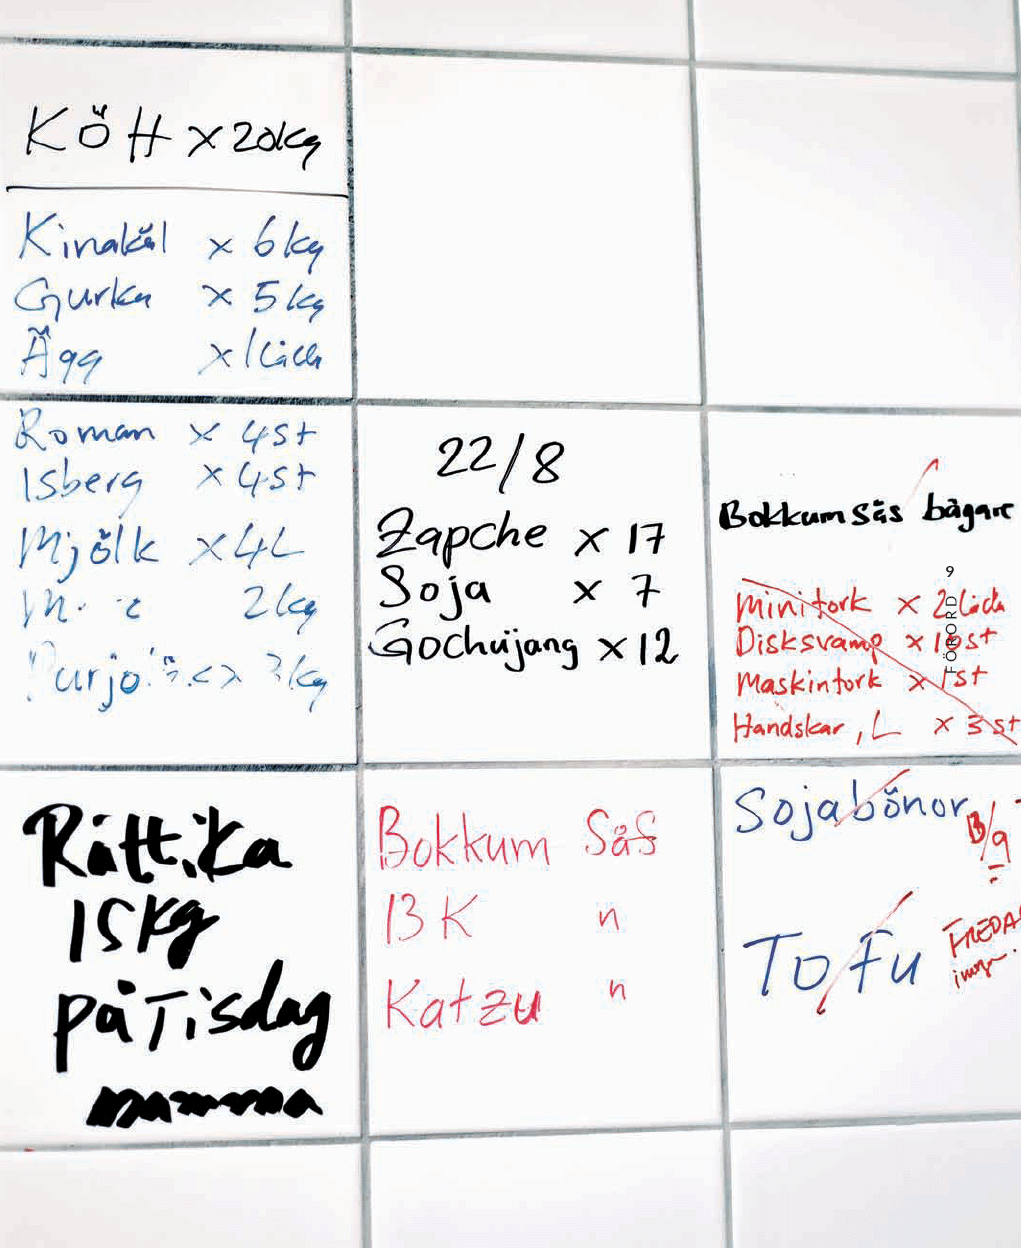 KÖtt x 20kg
Kinakål x 6kg
Gurka x 5kg
Ägg x 1 Låda
Roman x 4st
Isberg x 4st
Mjölk x 4L
2kg
22/8
Zapche x 17
Soja x 7
Gochujang x 12
Bokkum sås bägare
Minitork x 2 Låda
Disksvamp x 10st
Maskintork x 1st
Handskar, L x 3 st
FÖRORD 9
Rättika
15kg
på Tisdag
mamma
Bokkum Sås
BK "
Katzu "
Sojabönor
13/9
ToFu
FREDA